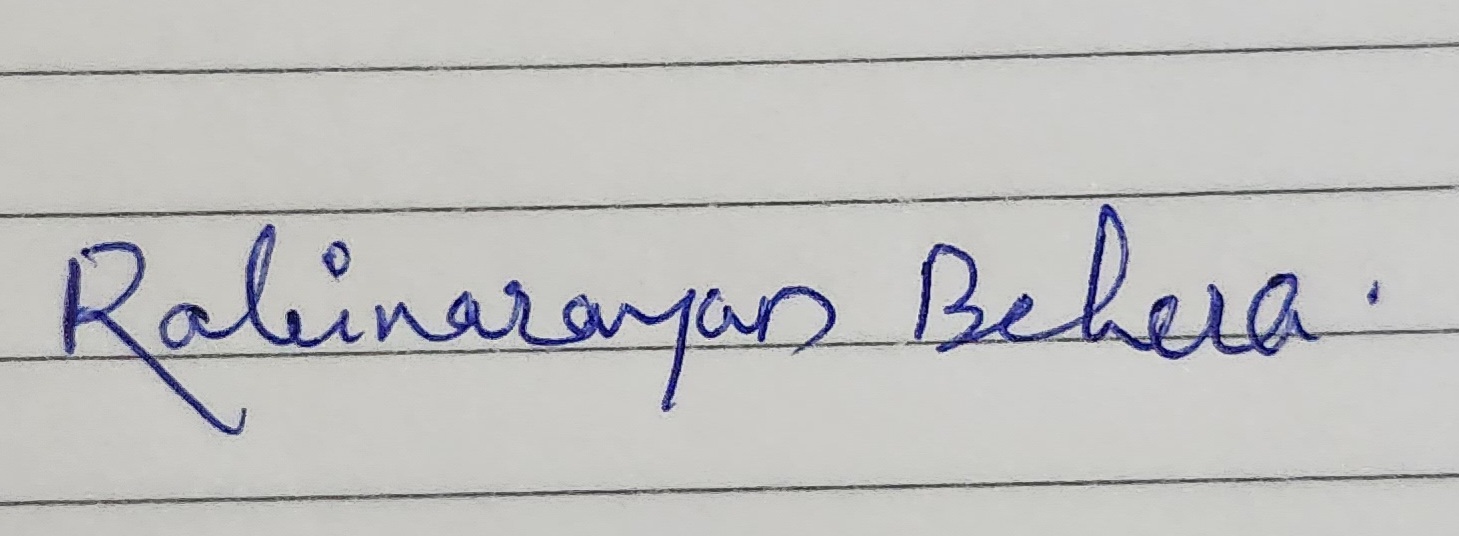 Rabinarayan Behera.